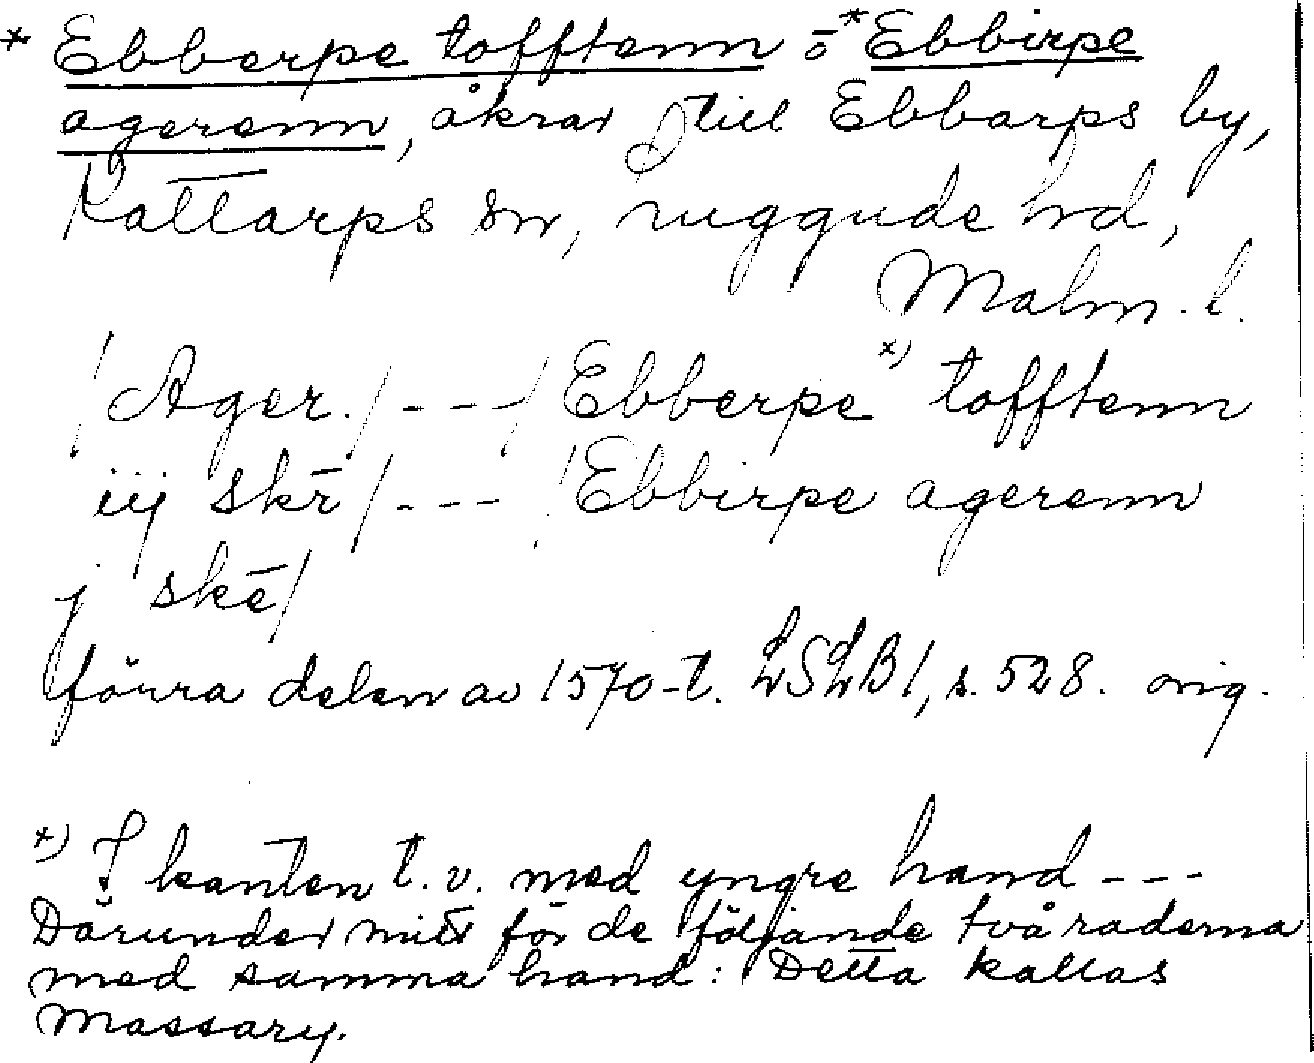 * Ebberpe tofftenn o *Ebbirpe
agerenn, åkrar till Ebbarps by,
Kattarps sn, Luggude hd,
Malm. l.
/Ager./ --- / Ebberpe *) tofftenn
iij skr̄ / --- / Ebbirpe agerenn
j skē /
förra delen av 1570-t. LSLB1, s. 528. orig.
*) I kanten t.v. med yngre hand ---
Därunder mitt för de följande två raderna
med samma hand: Detta kallas
Massary.